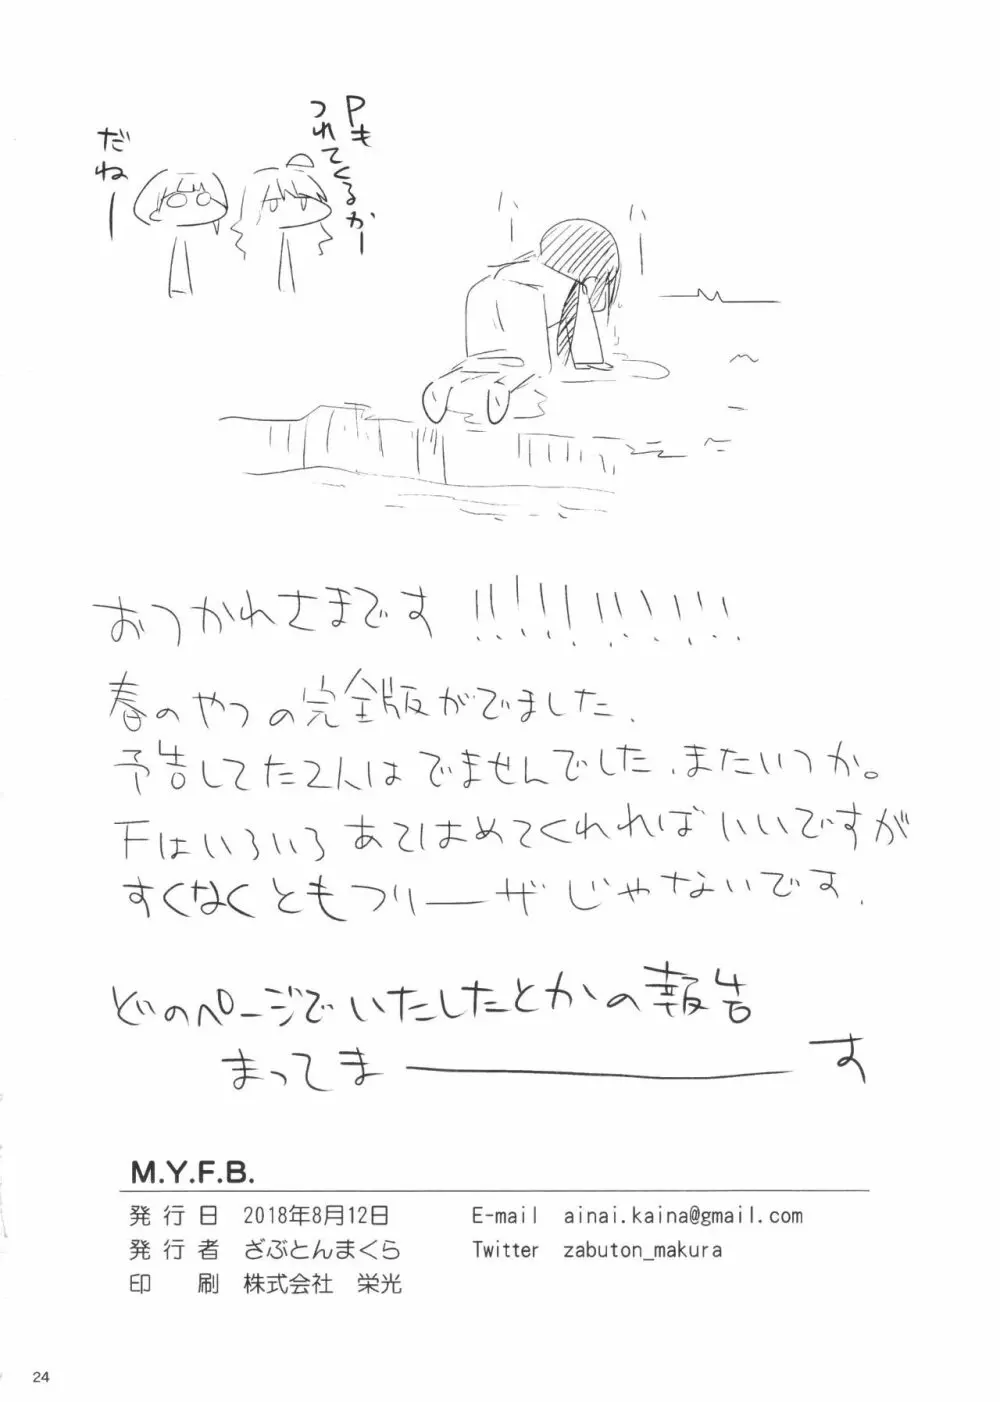 Pも
つれてくるかー
だねー
おつかれさまです!!!!!!!!!!!!
春のやつの完全版がでました.
予告してた2人はでませんでした、またいつか。
Fはいろいろあてはめてくれればいいですが
すくなくともフリーザじゃないです.
どのページでいたしたとかの報告
まってま――――す
M.Y.F.B.
発行日 2018年8月12日 E-mail ainai.kaina@gmail.com
発行者 ざぶとんまくら Twitter zabuton_makura
印 刷 株式会社 栄光
24